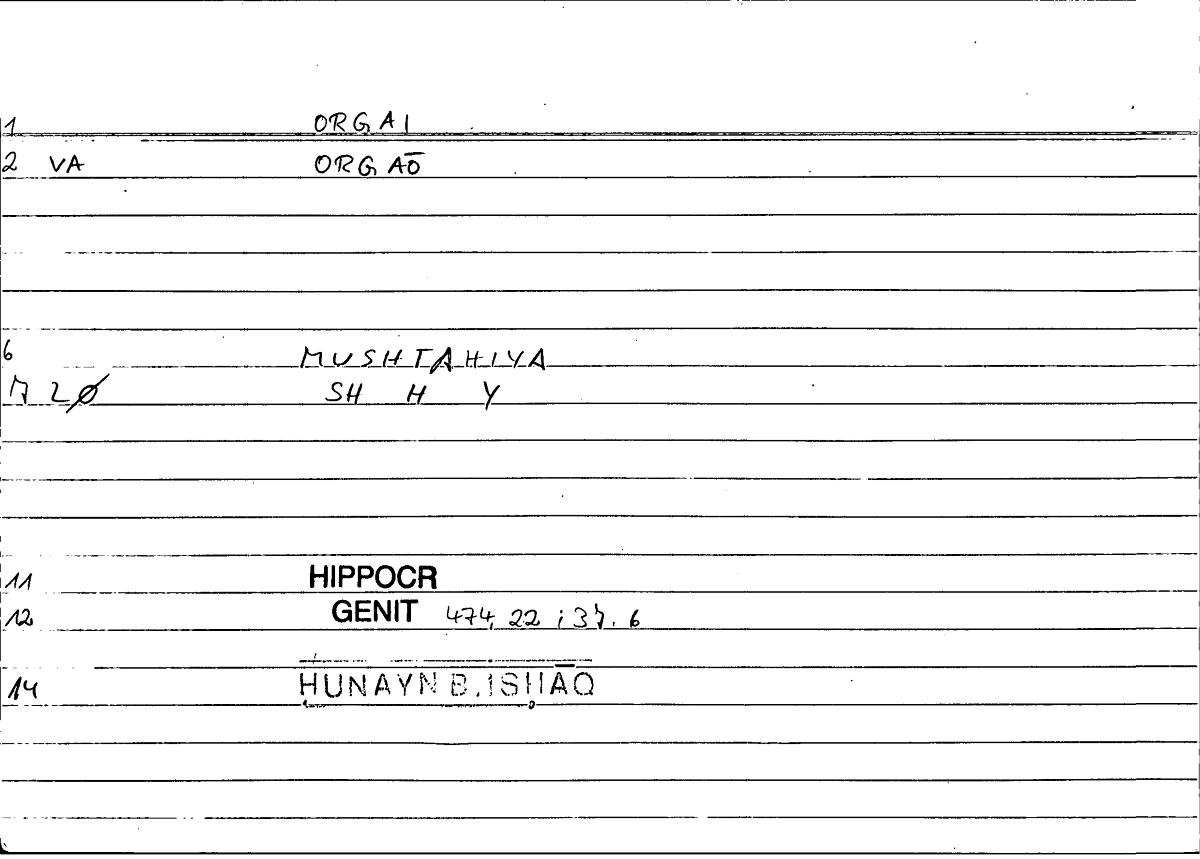 1 ORGAI
2 VA ORGAŌ
6 MUSHTAHIYA
7 20 SH H Y
11 HIPPOCR
12 GENIT 474, 22 ; 37. 6
14 HUNAYN B. ISḤĀQ